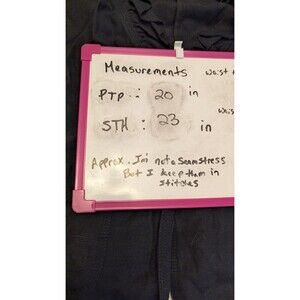 Measurements waist
PTP : 20 in
wais
STH : 23 in
Approx. I'm not a seamstress
But I keep them in
stitches